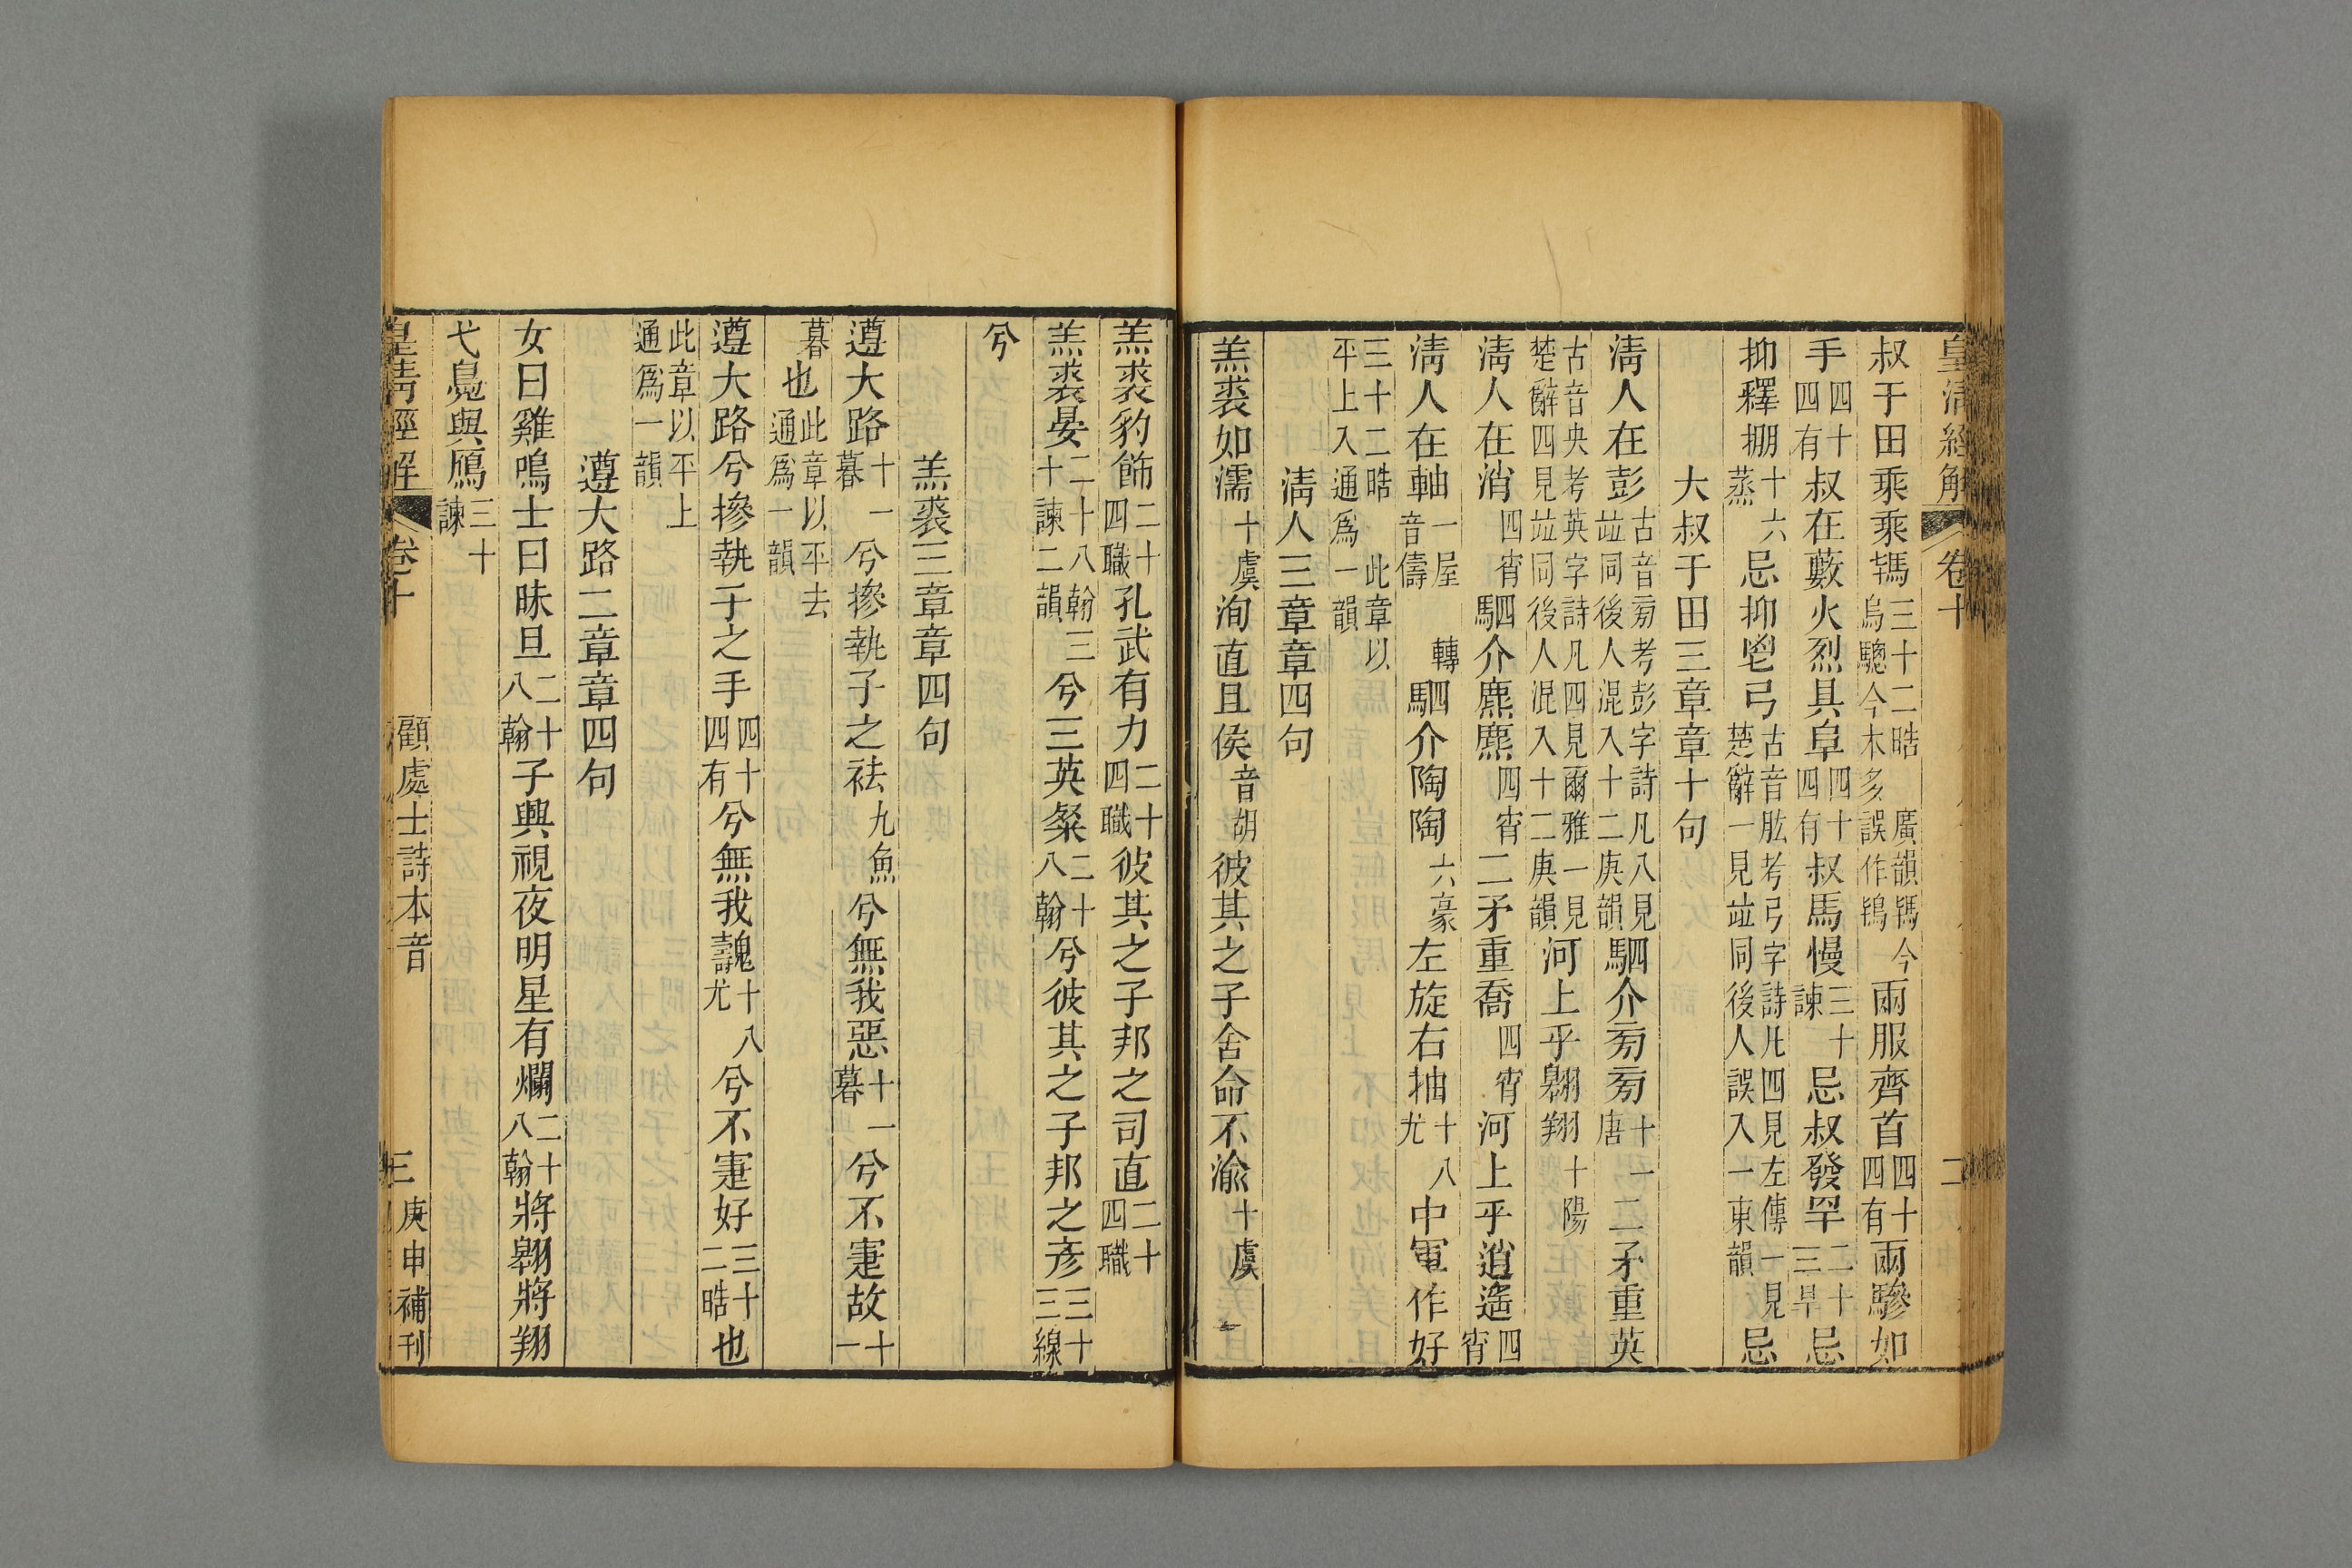 皇淸經解　卷十　二
叔于田乘乘駂三十二晧廣韻駂今烏驄今木多誤作鴇兩服齊首四十四有兩驂如
手四十四有叔在藪火烈具阜四十四有叔馬慢三十諫忌叔發罕二十三旱忌
抑釋掤十六蒸忌抑鬯弓古音肱考弓字詩凡四見左傳一見楚辭一見竝同後人誤入一東韻忌
大叔于田三章章十句
淸人在彭古音旁考彭字詩凡八見竝同後人混入十二庚韻駟介旁旁十一唐二矛重英
古音央考英字詩凡四見爾雅一見楚辭四見竝同後人混入十二庚韻河上乎翺翔十陽
淸人在消四宵駟介麃麃四宵二矛重喬四宵河上乎逍遙四宵
淸人在軸一屋轉音儔駟介陶陶六豪左旋右抽十八尤中軍作好
三十二晧此章以平上入通爲一韻
淸人三章章四句
羔裘如濡十虞洵直且侯音胡彼其之子舍命不渝十虞
羔裘豹飾二十四職孔武有力二十四職彼其之子邦之司直二十四職
羔裘晏二十八翰三十諫二韻兮三英粲二十八翰兮彼其之子邦之彥三十三線
兮
羔裘三章章四句
遵大路十一暮兮摻執子之袪九魚兮無我惡十一暮兮不寁故十一
暮也此章以平去通爲一韻
遵大路兮摻執子之手四十四有兮無我魗十八尤兮不寁好三十二晧也
此章以平上通爲一韻
遵大路二章章四句
女曰雞鳴士曰昧旦二十八翰子興視夜明星有爛二十八翰將翺將翔
弋鳧與鴈三十諫
皇淸經解　卷十　顧處士詩本音　三　庚申補刊